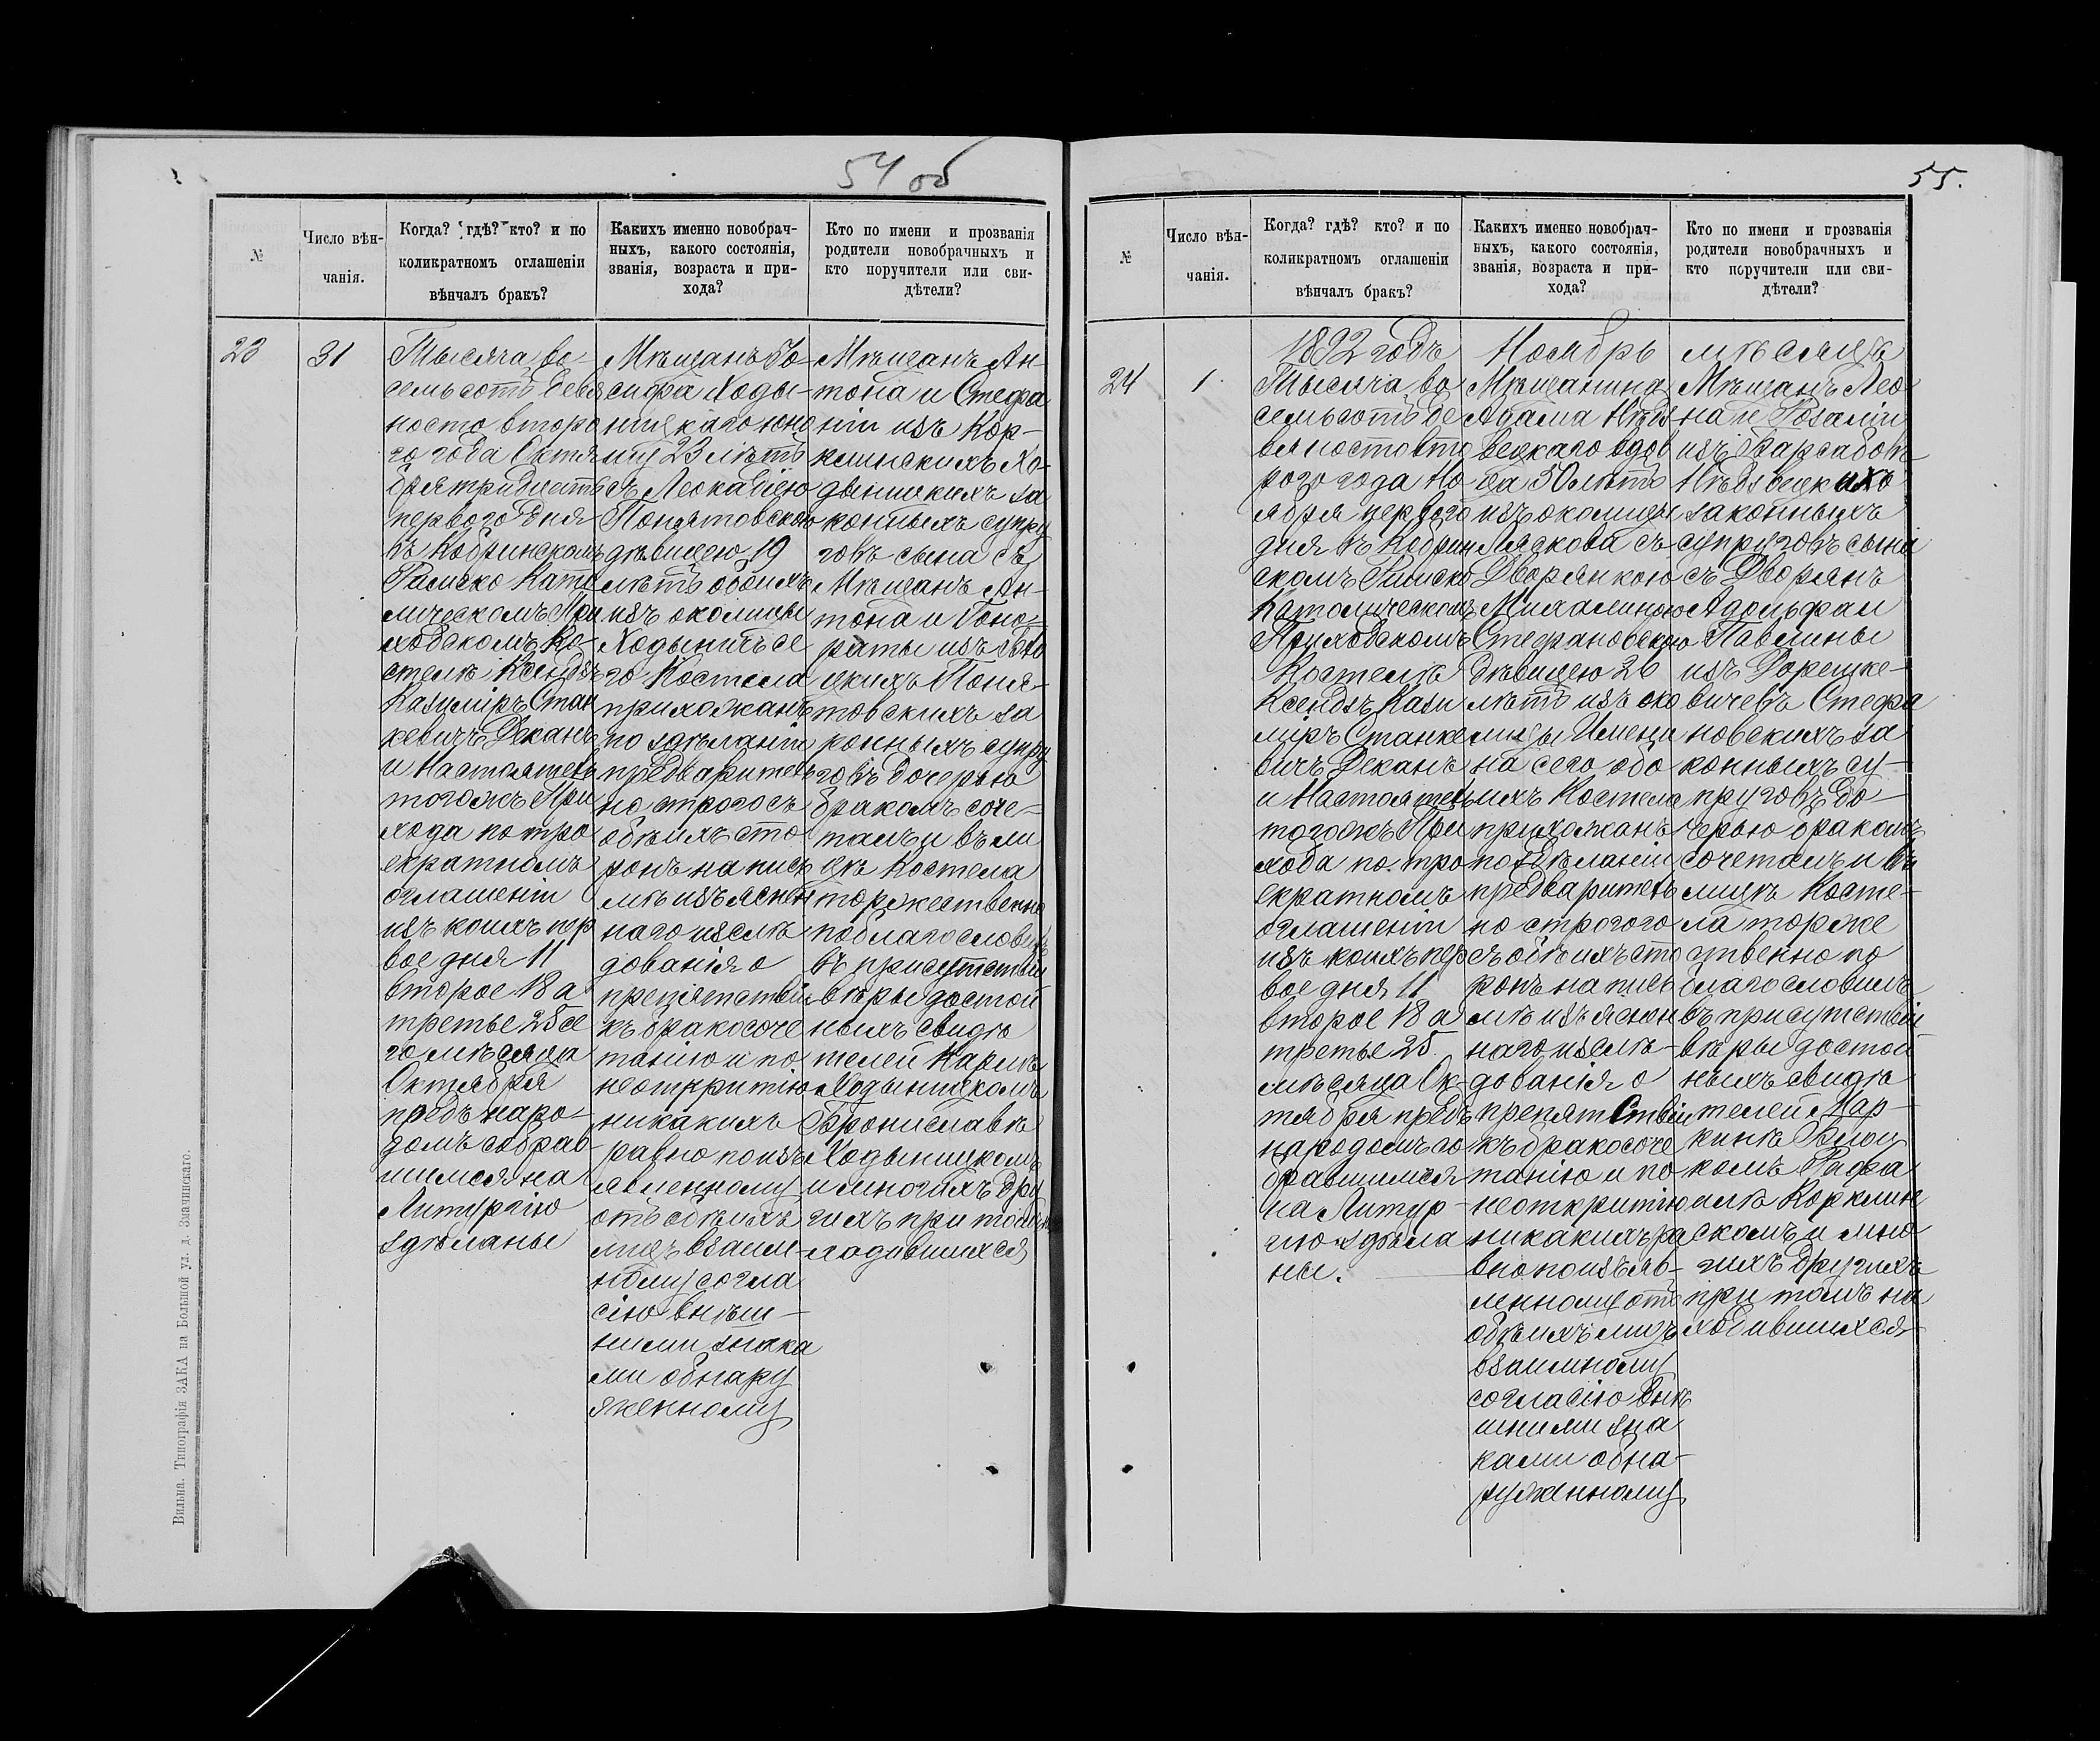 54 об
№
Число вѣн-
чанія.
Когда? гдѣ? кто? и по
коликратномъ оглашеніи
вѣнчалъ бракъ?
Какихъ именно новобрач-
ныхъ, какого состоянія,
званія, возраста и при-
хода?
Кто по имени и прозванія
родители новобрачныхъ и
кто поручители или сви-
дѣтели?
23
31
Тысяча во-
семьсотъ девя
носто второ
го года Октя
бря тридцать
перваго дня
въ Кобринскомъ
Римско Като
лическомъ При
ходскомъ Ко-
стелѣ Ксендзъ
Казиміръ Стан
кевичъ Деканъ
и Настоятель
тогожъ При
хода по тро
екратномъ
оглашеніи
изъ коихъ пер
вое дня 11
второе 18 а
третье 25 се
го мѣсяца
Октября
предъ наро-
домъ собрав
шимся на
Литургію
здѣланы
Мѣщанъ Іо-
сифа Ходы-
ницкаго юно
шу 23 лѣтъ
съ Леокадіею
Понятовскою
дѣвицею 19
лѣтъ обоихъ
изъ околицы
Ходыничъ се
го Костела
прихожанъ
по здѣланіи
предваритель
но строго съ
обѣихъ сто
ронъ на пись
мѣ изъяснен
наго изслѣ
дованія о
препятствіи
къ бракосоче
танію и по
неоткритію
никакихъ
равно по изъ
явленному
отъ обѣихъ
лицъ взаим-
ному согла
сію внѣш-
ними знака
ми обнару
женному
Мѣщанъ Ан-
тона и Стефа
ніи изъ Кор-
клинскихъ Хо-
дыницкихъ за
конныхъ супру
говъ сына съ
Мѣщанъ Ан-
тона и Гоно-
раты изъ
цкихъ Поня-
товскихъ за
конныхъ супру
говъ дочерью
бракомъ соче-
талъ и въ ли
цѣ Костела
торжественно
поблагословилъ
въ присутствіи
вѣры достой
ныхъ свидѣ
телей Карлѣ
Ходыницкомъ
Брониславѣ
Ходыницкомъ
и многихъ дру
гихъ при томъ на
ходившихся
Вильна. Типографія ЗАКА на Большой ул. д. Змачинскаго.
55.
№
Число вѣн-
чанія.
Когда? гдѣ? кто? и по
коликратномъ оглашеніи
вѣнчалъ бракъ?
Какихъ именно новобрач-
ныхъ, какого состоянія,
званія, возраста и при-
хода?
Кто по имени и прозванія
родители новобрачныхъ и
кто поручители или сви-
дѣтели?
1892 годъ Ноябрь мѣсяцъ
24
1
Тысяча во
семьсотъ де
вяносто вто
рого года Но
ября перваго
дня въ Кобрин
скомъ Римско
Католическомъ
Приходскомъ
Костелѣ
Ксендзъ Кази
міръ Станке
вичъ Деканъ
и Настоятель
тогожъ При
хода по тро
екратномъ
оглашеніи
изъ коихъ пер
вое дня 11
второе 18 а
третье 25
мѣсяца Ок-
тября предъ
народомъ со
бравшимся
на Литур-
гію здѣла
ны.
Мѣщанина
Адама Нѣдз
вецкаго вдов
ца 30 лѣтъ
изъ околицы
Ляскова съ
Дворянкою
Михалиною
Стефановскою
дѣвицею 26
лѣтъ изъ око
лицы Имени
на сего обо
ихъ Костела
прихожанъ
по здѣланіи
предваритель
но строгого
съ обѣихъ сто
ронъ на пись
мѣ изъяснен
наго изслѣ-
дованія о
препятствіи
къ бракосоче
танію и по
неоткритію
никакихъ ра
вно по изъяв-
ленному отъ
обѣихъ лицъ
взаимному
согласію внѣ
шними зна
ками обна-
руженному
Мѣщанъ Лео
на и Розаліи
изъ
Нѣдзвецкихъ
законныхъ
супруговъ сына
съ Дворянъ
Адольфа и
Павлины
изъ Дорешке-
вичевъ Стефа
новскихъ за
конныхъ су-
пруговъ до-
черью бракомъ
сочеталъ и въ
лицѣ Косте-
ла торже
ственно по
благословилъ
въ присутствіи
вѣры достой
ныхъ свидѣ
телей Мар-
кинѣ
комъ Рафа
илѣ Корклин
скомъ и мно
гихъ другихъ
при томъ на
ходившихся